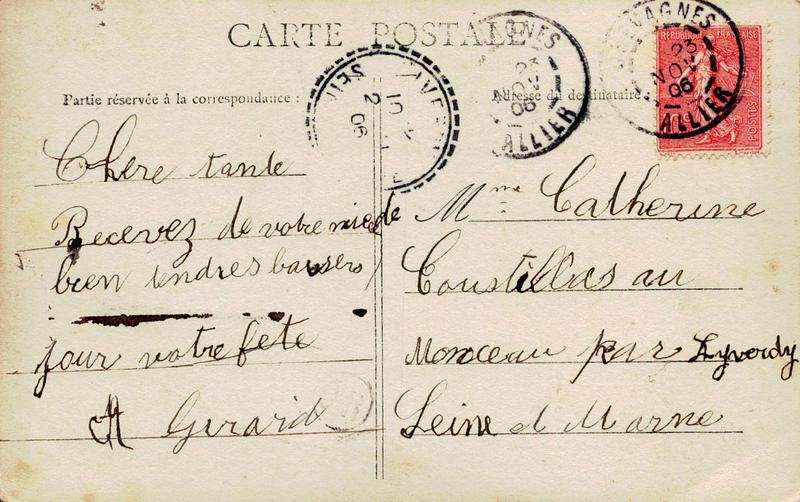 CARTE POSTALE
Partie réservée à la correspondance :
Adresse du destinataire
Chère tante
Recevez de votre nièce de
bien tendres baisers
pour votre fête
Girard
Mme Catherine
Coustillas au
Monceau par Lyverdy
Seine et Marne
CHEVAGNES
23
NOV
06
ALLIER
VAGNES
23
NOV
06
ALLIER
SEIN
2
06
REPUBLIQUE FRANÇAISE
10
POSTES